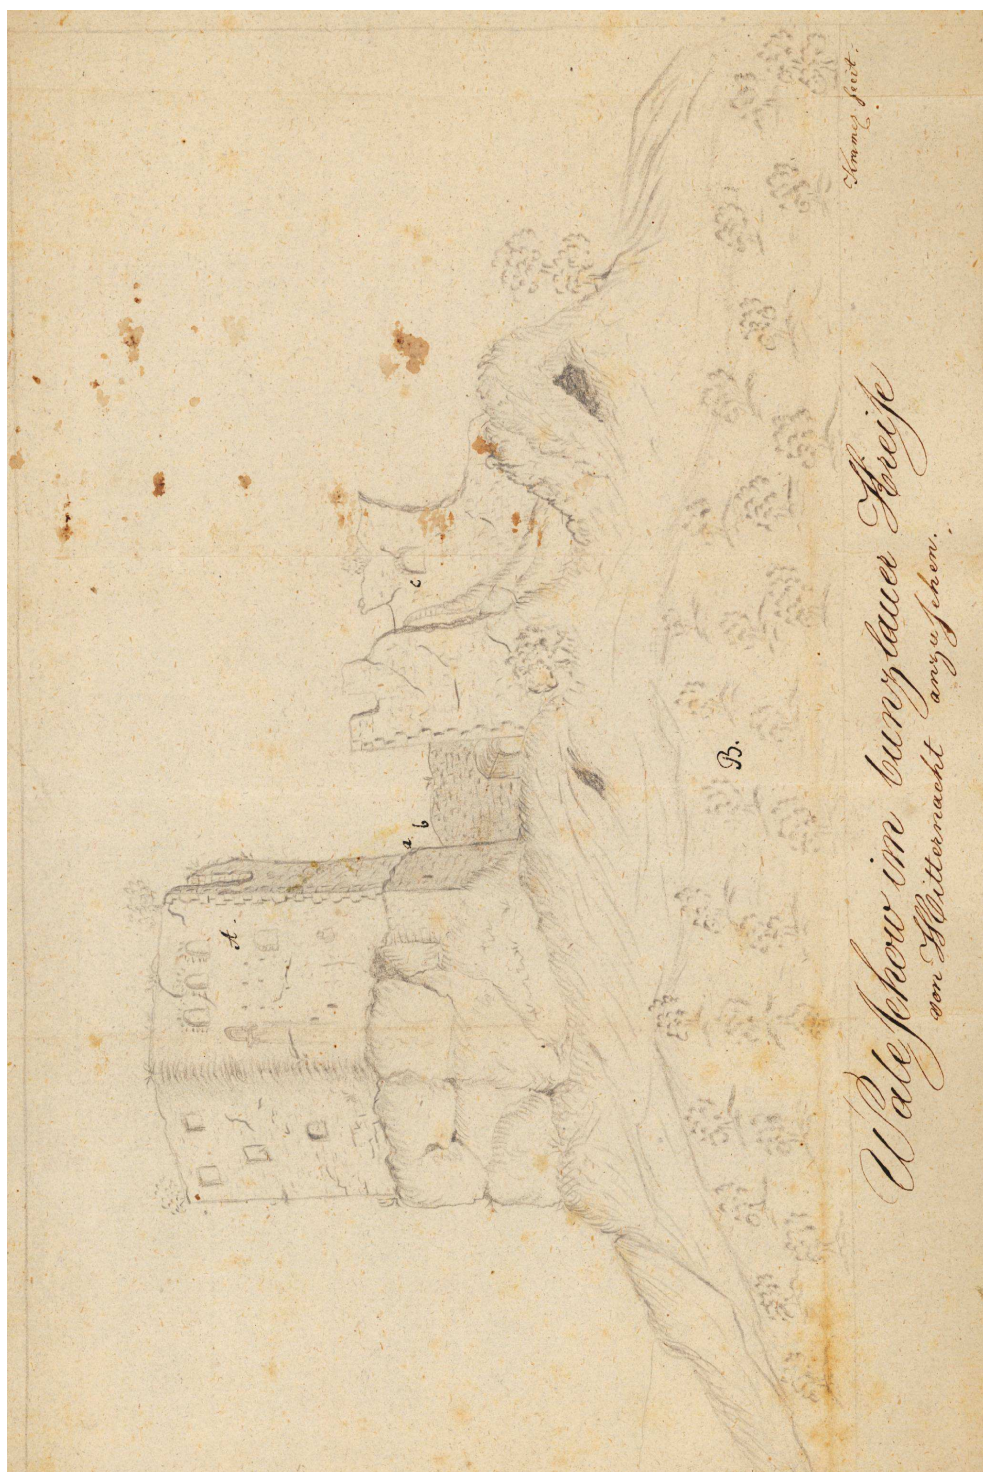 A.
a
b
c
B.
Waleſchow im bunzlauer Kreiſe
von Mitternacht anzuſehen.
fecit.